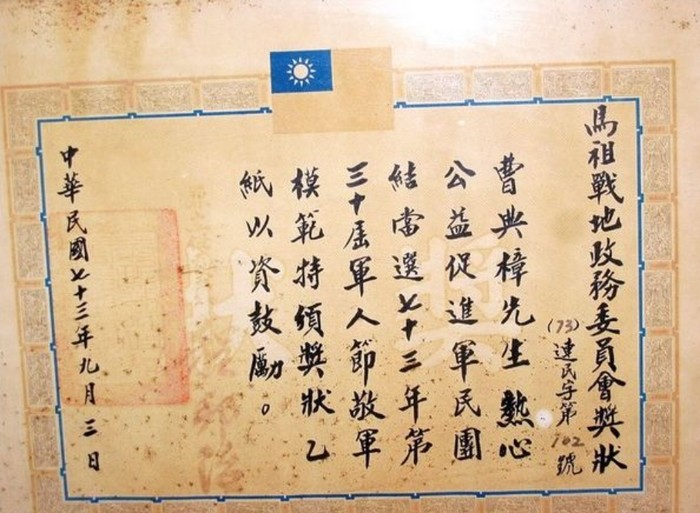 馬祖戰地政務委員會獎狀
(73)連民字第102號
曹典樟先生熱心
公益促進軍民團
結當選七十三年第
三十屆軍人節敬軍
模範特頒獎狀乙
紙以資鼓勵。
中華民國七十三年九月三日
獎狀